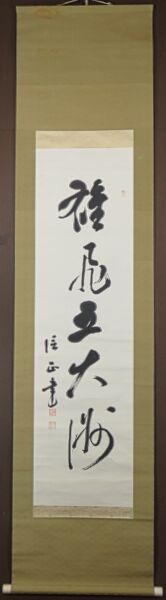 雄飛五大洲
信正書